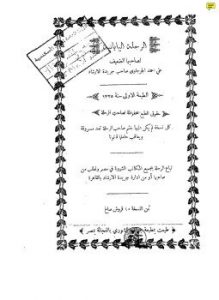 الرحلة اليابانية
لصاحبها الضعيف
علي احمد الجرجاوي صاحب جريدة الارشاد
الطبعة الاولى سنة ١٣٢٥
حقوق الطبع محفوظة لصاحب الرحلة
كل نسخة لم يكن عليها ختم صاحب الرحلة تعد مسروقة
ويعاقب حاملها قانونا
تباع الرحلة بجميع المكاتب الشهيرة في مصر وتطلب من
صاحبها أو من ادارة جريدة الارشاد بالقاهرة
ثمن النسخة ١٠ قروش صاغ
طبعت بمطبعة بالفجالة بمصر